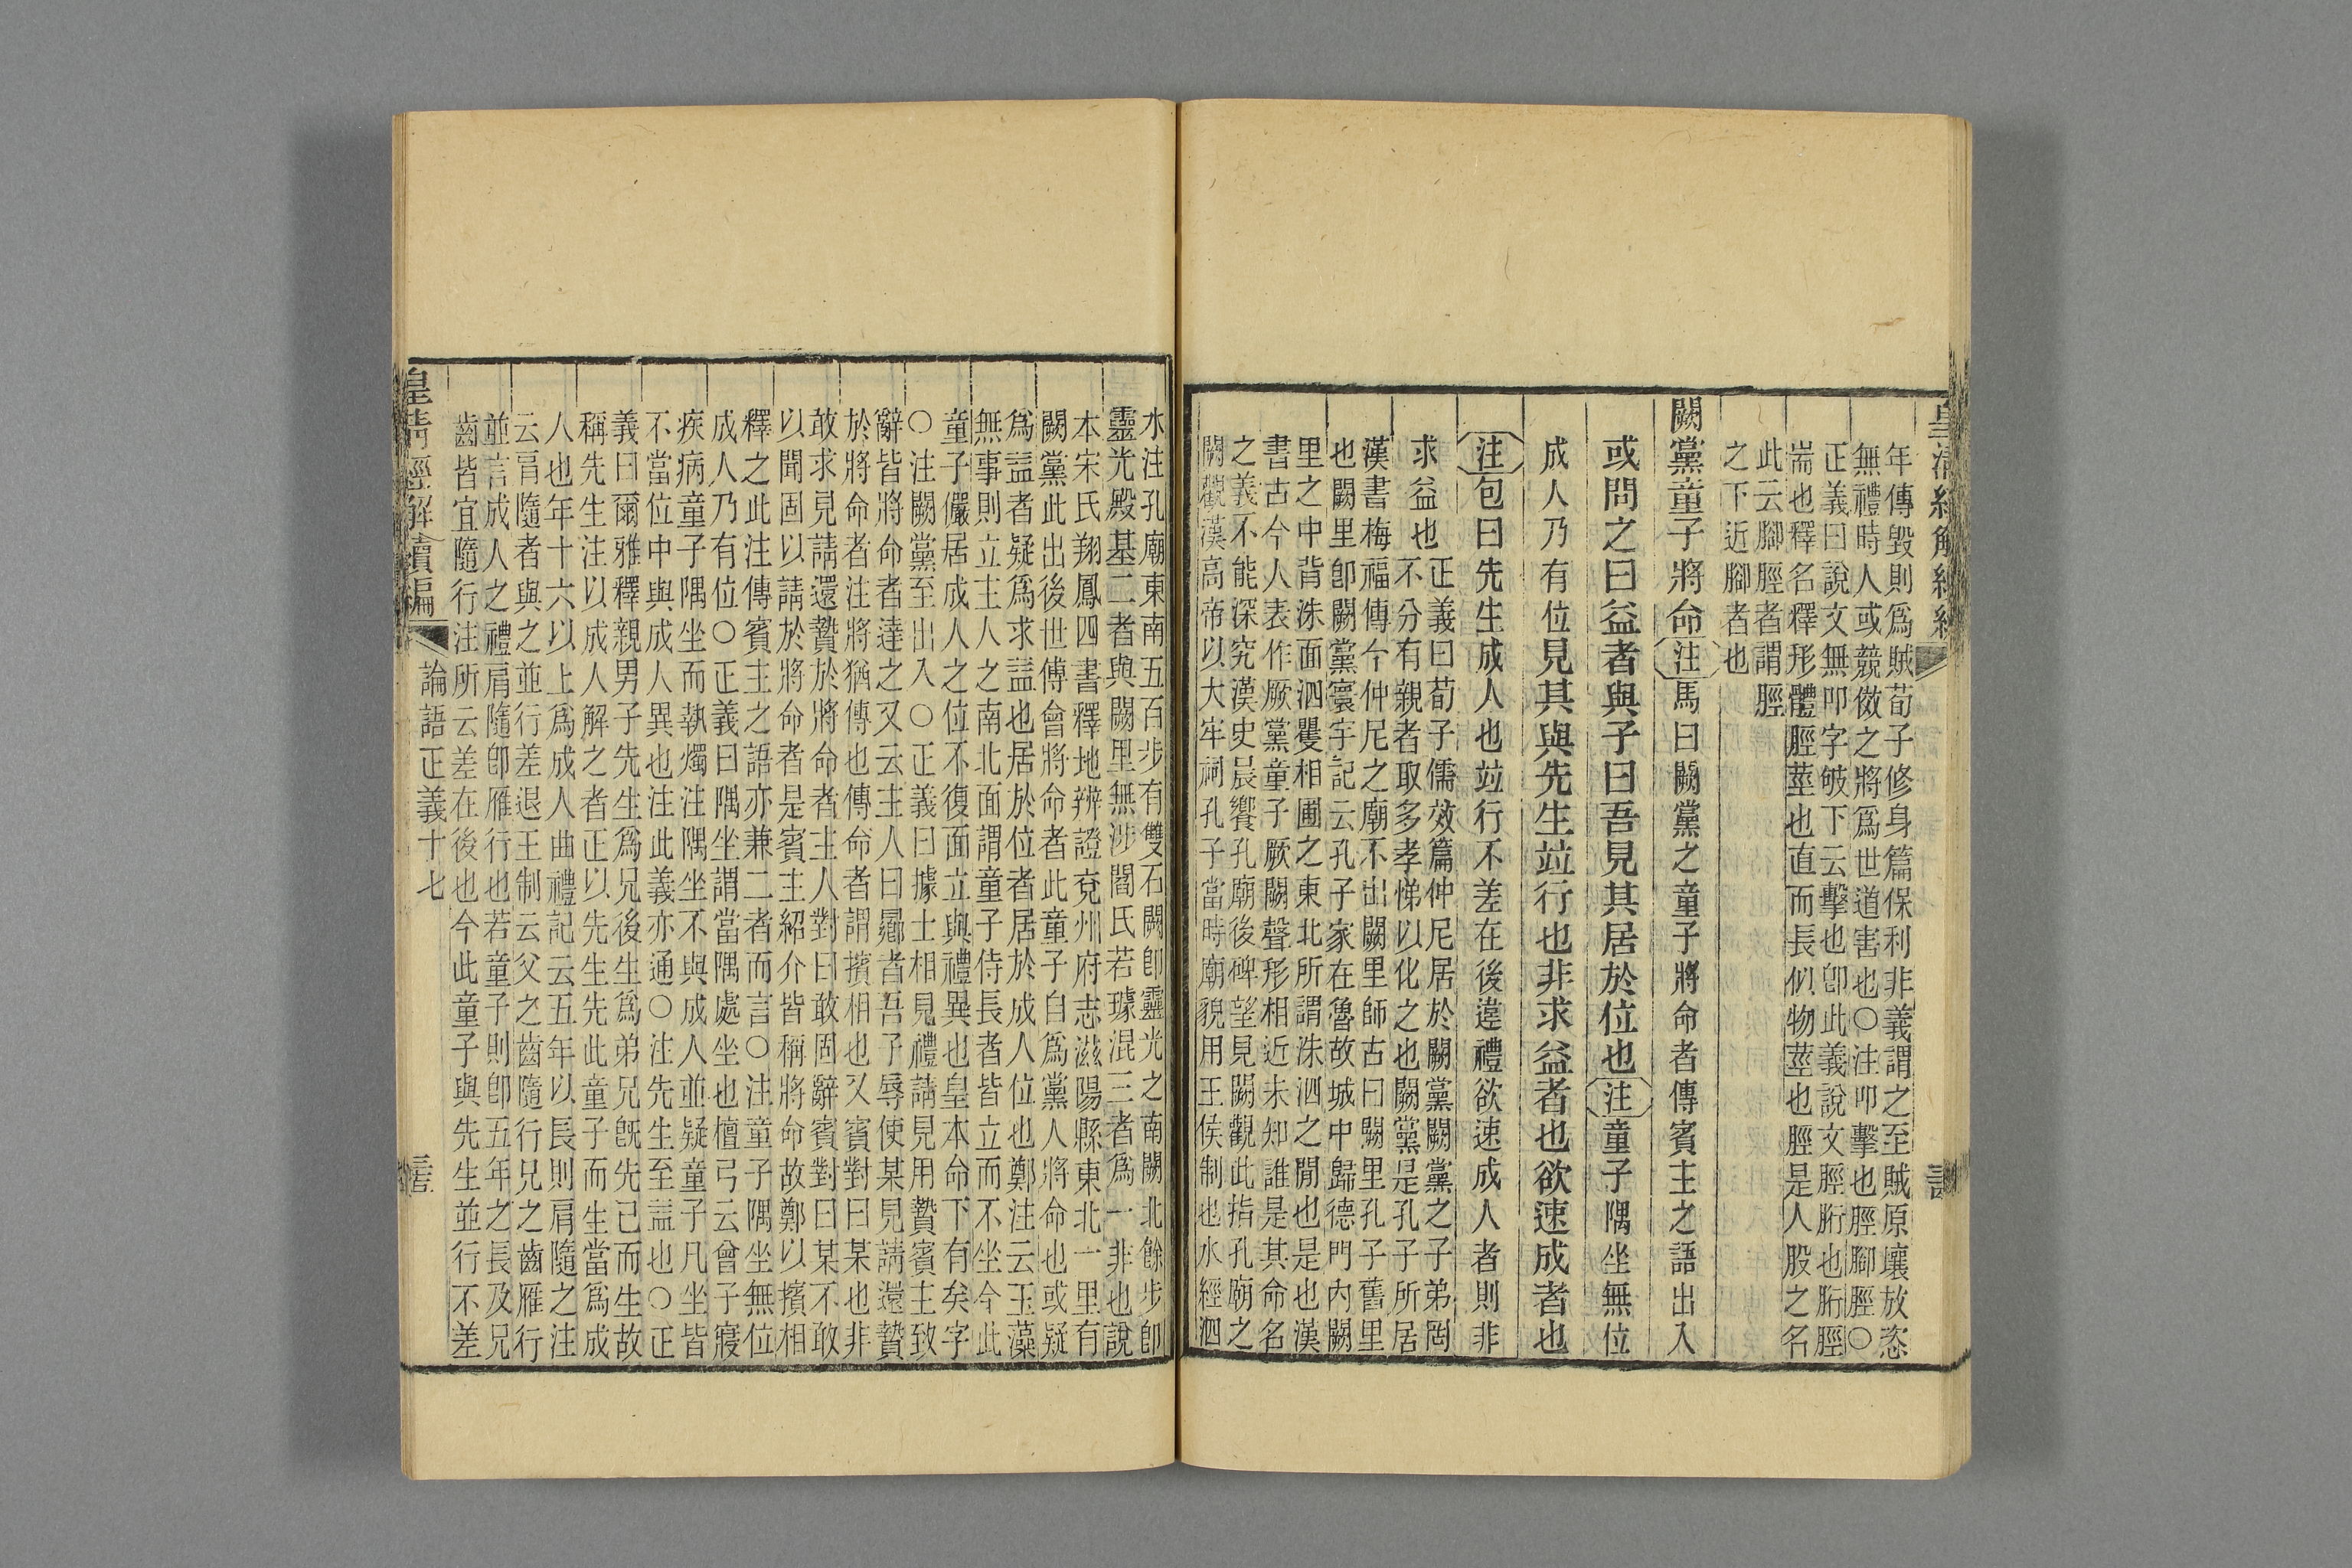 皇清經解續編
年傳毀則爲賊荀子修身篇保利非義謂之至賊原壤放恣
無禮時人或競倣之將爲世道害也〇注叩擊也脛腳脛〇
正義曰說文無叩字㪃下云擊也卽此義說文脛胻也胻脛
耑也釋名釋形體脛莖也直而長似物莖也脛是人股之名
此云腳脛者謂脛
之下近腳者也
闕黨童子將命注馬曰闕黨之童子將命者傳賓主之語出入
或問之曰益者與子曰吾見其居於位也注童子隅坐無位
成人乃有位見其與先生竝行也非求益者也欲速成者也
注包曰先生成人也竝行不差在後違禮欲速成人者則非
求益也
正義曰荀子儒效篇仲尼居於闕黨闕黨之子弟罔
不分有親者取多孝悌以化之也闕黨是孔子所居
漢書梅福傳今仲尼之廟不出闕里師古曰闕里孔子舊里
也闕里卽闕黨寰宇記云孔子家在魯故城中歸德門內闕
里之中背洙面泗矍相圃之東北所謂洙泗之閒也是也漢
書古今人表作厥黨童子厥闕聲形相近未知誰是其命名
之義不能深究漢史晨饗孔廟後碑望見闕觀此指孔廟之
闕觀漢高帝以大牢祠孔子當時廟貌用王侯制也水經泗
水注孔廟東南五百步有雙石闕卽靈光之南闕北餘步卽
靈光殿基二者與闕里無涉閻氏若璩混三者爲一非也說
本宋氏翔鳳四書釋地辨證兗州府志滋陽縣東北一里有
闕黨此出後世傅會將命者此童子自爲黨人將命也或疑
爲益者疑爲求益也居於位者居於成人位也鄭注云玉藻
無事則立主人之南北面謂童子侍長者皆立而不坐今此
童子儼居成人之位不復面立與禮異也皇本命下有矣字
〇注闕黨至出入〇正義曰據士相見禮請見用贄賓主致
辭皆將命者達之又云主人曰曏者吾子辱使某見請還贄
於將命者注將猶傳也傳命者謂擯相也又賓對曰某也非
敢求見請還贄於將命者主人對曰敢固辭賓對曰某不敢
以聞固以請於將命者是賓主紹介皆稱將命故鄭以擯相
釋之此注傳賓主之語亦兼二者而言〇注童子隅坐無位
成人乃有位〇正義曰隅坐謂當隅處坐也檀弓云曾子寢
疾病童子隅坐而執燭注隅坐不與成人並疑童子凡坐皆
不當位中與成人異也注此義亦通〇注先生至益也〇正
義曰爾雅釋親男子先生爲兄後生爲弟兄旣先已而生故
稱先生注以成人解之者正以先生先此童子而生當爲成
人也年十六以上爲成人曲禮記云五年以長則肩隨之注
云肩隨者與之並行差退王制云父之齒隨行兄之齒雁行
並言成人之禮肩隨卽雁行也若童子則卽五年之長及兄
齒皆宜隨行注所云差在後也今此童子與先生並行不差
皇清經解續編
論語正義十七